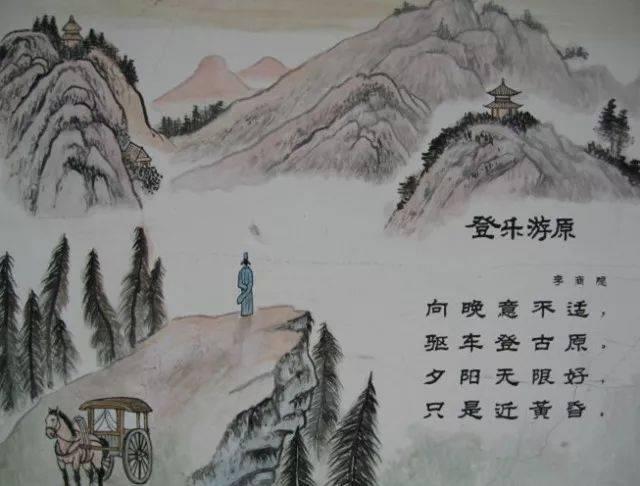 登乐游原
李商隐
向晚意不适，
驱车登古原，
夕阳无限好，
只是近黄昏，